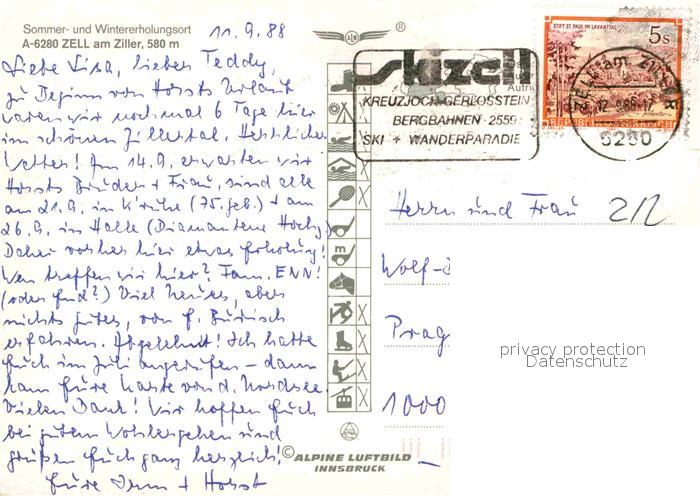 Sommer- und Wintererholungsort
A-6280 ZELL am Ziller, 580 m
11.9.88
Liebe Lisa, lieber Teddy,
zu Beginn von Horsts Urlaub
waren wir noch mal 6 Tage hier
im schönen Zillertal. Herrliches
Wetter! Am 14.9. erwarten wir
Horsts Bruder + Frau, sind alle
am 21.9. in (75. Geb.) + am
26.9. in Halle (Diamantene Hochz.)
Daher vorher hier etwas Erholung!
Wen treffen wir hier? Fam. ENN!
(oder End?) Viel Neues, aber
nichts gutes, von
erfahren. Abgelehnt! Ich hatte
Euch im Juli angerufen – dann
kam Eure Karte von d. Nordsee.
Vielen Dank! Wir hoffen Euch
bei gutem Wohlergehen und
grüßen Euch ganz herzlich!
Eure + Horst
skizell
KREUZJOCH-GERLOSSTEIN
BERGBAHNEN 2559
SKI + WANDERPARADIE
STIFT ST. PAUL IM LAVANTTAL
5s
ZELL am ZILLER
12.9.88-17
6280
Herrn und Frau 2/2
Wolf-
Prag
1000
privacy protection
Datenschutz
© ALPINE LUFTBILD
INNSBRUCK